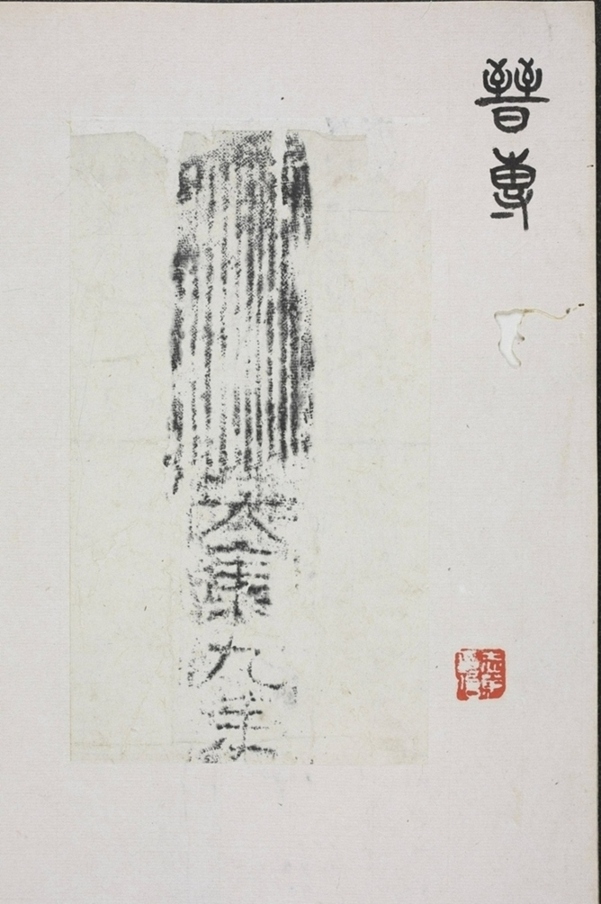 晉專
大康九年